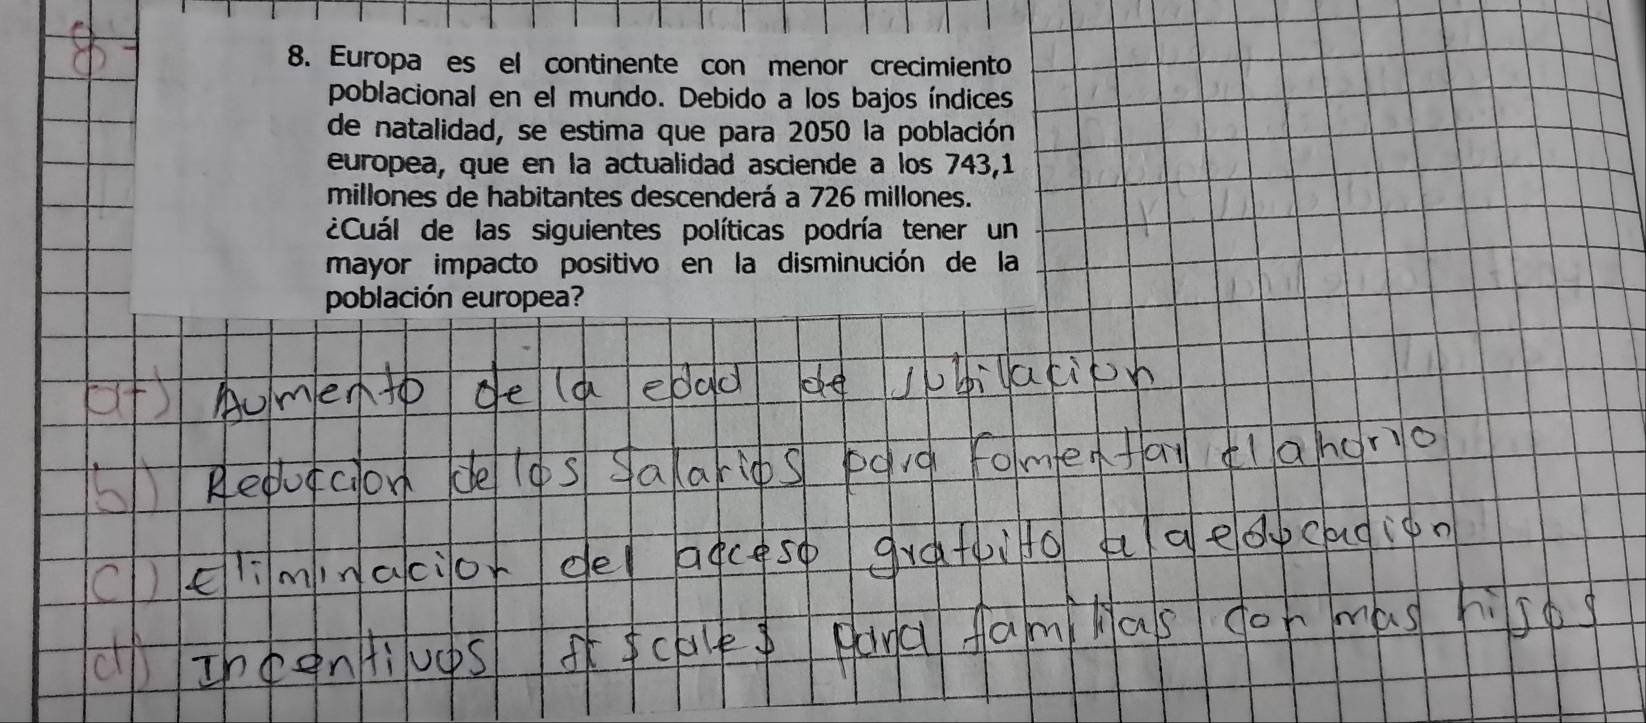 8-
8. Europa es el continente con menor crecimiento
poblacional en el mundo. Debido a los bajos índices
de natalidad, se estima que para 2050 la población
europea, que en la actualidad asciende a los 743,1
millones de habitantes descenderá a 726 millones.
¿Cuál de las siguientes políticas podría tener un
mayor impacto positivo en la disminución de la
población europea?
a) Aumento de la edad de jubilacion
b) Reduccion de los Salarios para fomentar el ahorro
c) Eliminacion del acceso gratuito a la educacion
d) Incentivos fiscales para familias con mas hijos